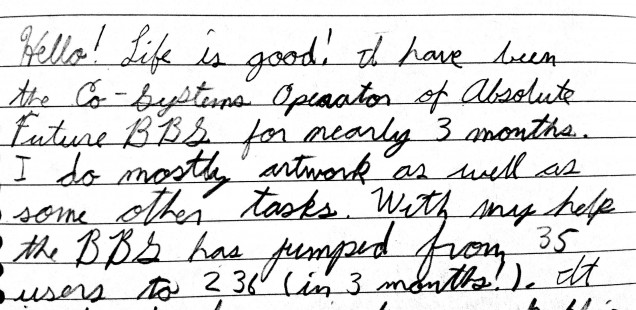 Hello! Life is good! I have been
the Co-Systems Operator of Absolute
Future BBS for nearly 3 months.
I do mostly artwork as well as
some other tasks. With my help
the BBS has jumped from 35
users to 236 (in 3 months!). It